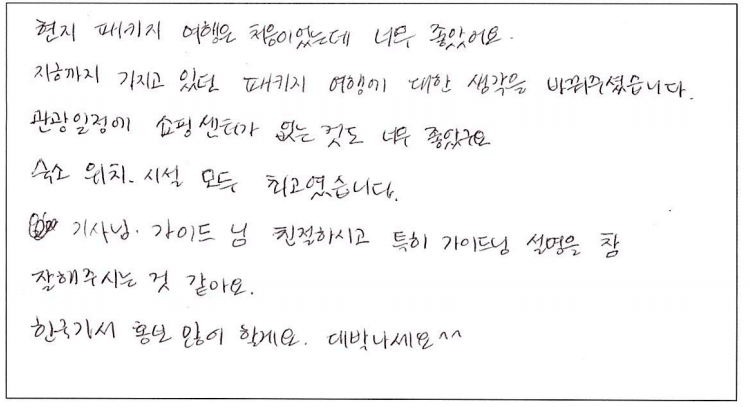 현지 패키지 여행은 처음이었는데 너무 좋았어요.
지금까지 가지고 있던 패키지 여행에 대한 생각을 바꿔주셨습니다.
관광일정에 쇼핑센터가 없는 것도 너무 좋았구요
숙소 위치. 시설 모두 최고였습니다.
기사님. 가이드 님 친절하시고 특히 가이드님 설명을 참
잘해주시는 것 같아요.
한국가서 홍보 많이 할게요. 대박나세요^^